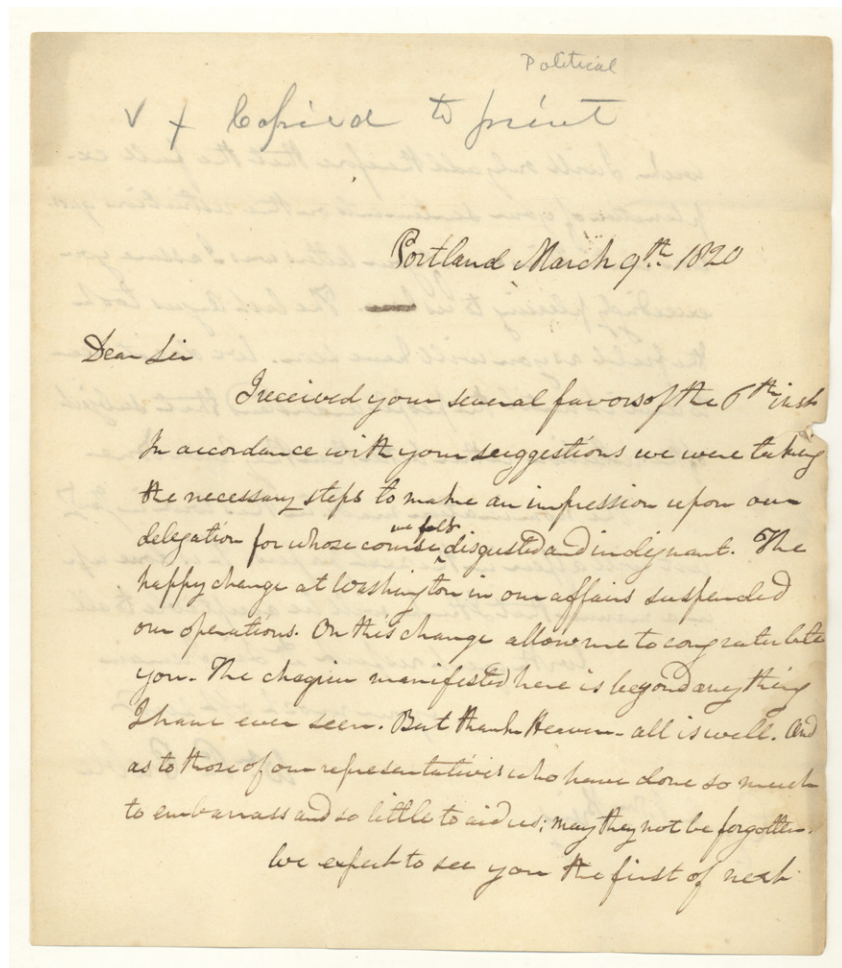 Political
✓ x Copied to print
Portland March 9th. 1820
Dear Sir
I received your several favors of the 6th inst
In accordance with your suggestions we were taking
the necessary steps to make an impression upon our
we felt
delegation for whose course ‸ disgusted and indignant. The
happy change at Washington in our affairs suspended
our operations. On this change allow me to congratulate
you. The chagrin manifested here is beyond any thing
I have ever seen. But thank Heaven - all is well. And
as to those of our representatives who have done so much
to embarrass and so little to aid us; may they not be forgotten.
We expect to see you the first of next